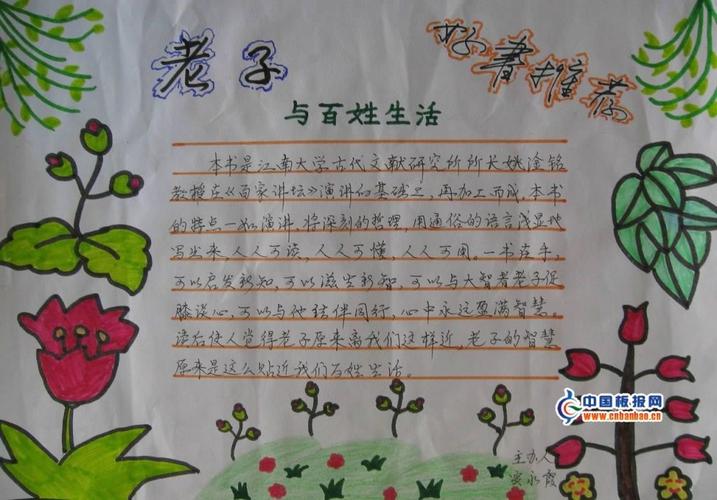 老子
好书推荐
与百姓生活
本书是江南大学古代文献研究所所长姚淦铭
教授在《百家讲坛》演讲的基础上，再加工而成。本书
的特点一如演讲，将深刻的哲理，用通俗的语言浅显地
写出来，人人可读，人人可懂，人人可用。一书在手，
可以启发新知，可以滋生新知，可以与大智者老子促
膝谈心，可以与他结伴同行，心中永远盈满智慧。
读后使人觉得老子原来离我们这样近，老子的智慧
原来是这么贴近我们百姓生活。
中国板报网
www.cnbanbao.cn
主办人
永霞